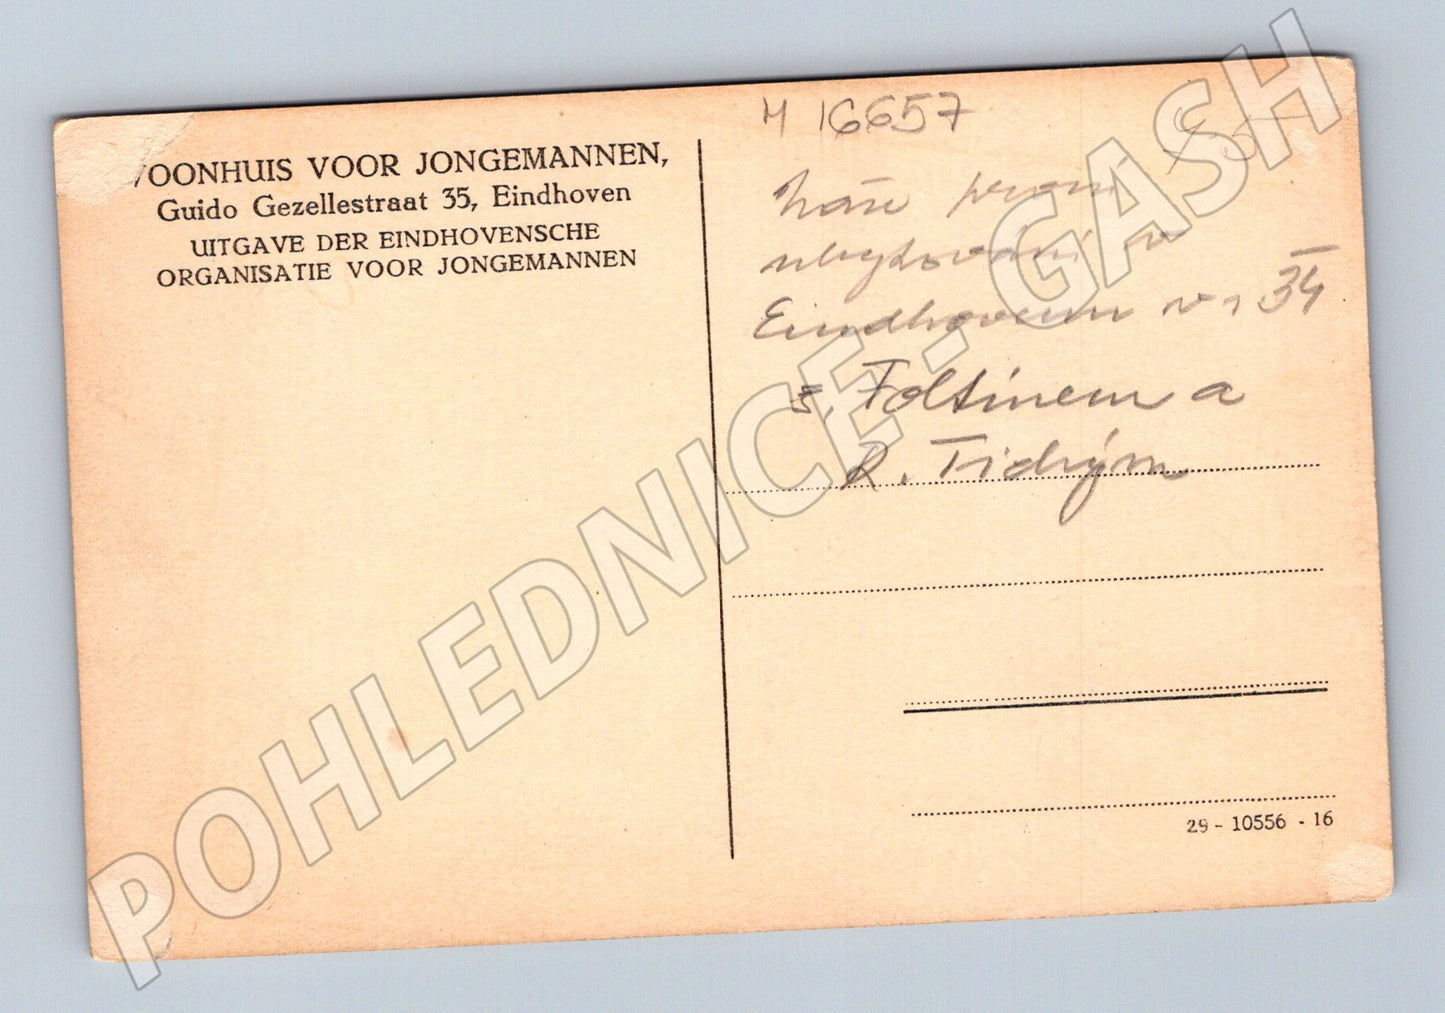 WOONHUIS VOOR JONGEMANNEN,
Guido Gezellestraat 35, Eindhoven
UITGAVE DER EINDHOVENSCHE
ORGANISATIE VOOR JONGEMANNEN
M 16657
Naše první
ubytování v
Eindhovenu v r. 34
s. Foltinem a
R. Tichým
29 - 10556 - 16
POHLEDNICE - GASH